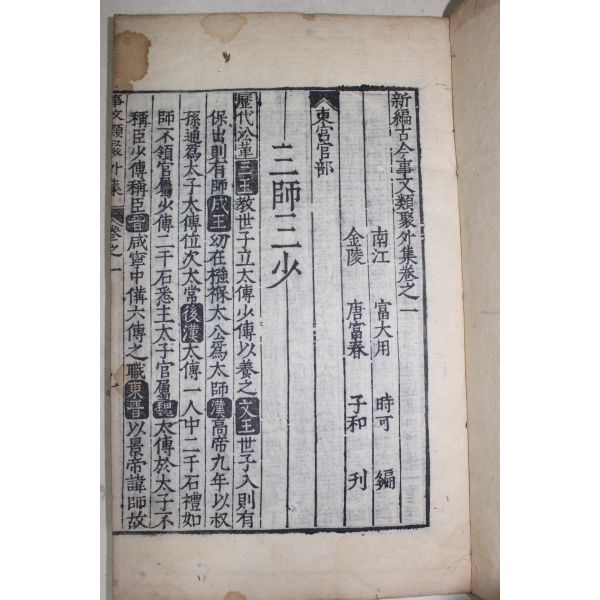 新編古今事文類聚外集卷之一
南江 富大用 時可 編
金陵 唐富春 子和 刊
東宮官部
三師三少
歷代沿革三王教世子立太傅少傅以養之文王世子入則有
保出則有師成王幼在襁褓太公爲太師漢高帝九年以叔
孫通爲太子太傅位次太常後漢太傅一人中二千石禮如
師不領官屬少傅二千石悉主太子官屬魏太傅於太子不
稱臣少傅稱臣晉咸寧中備六傅之職東晉以景帝諱師故
事文類聚外集 卷之一